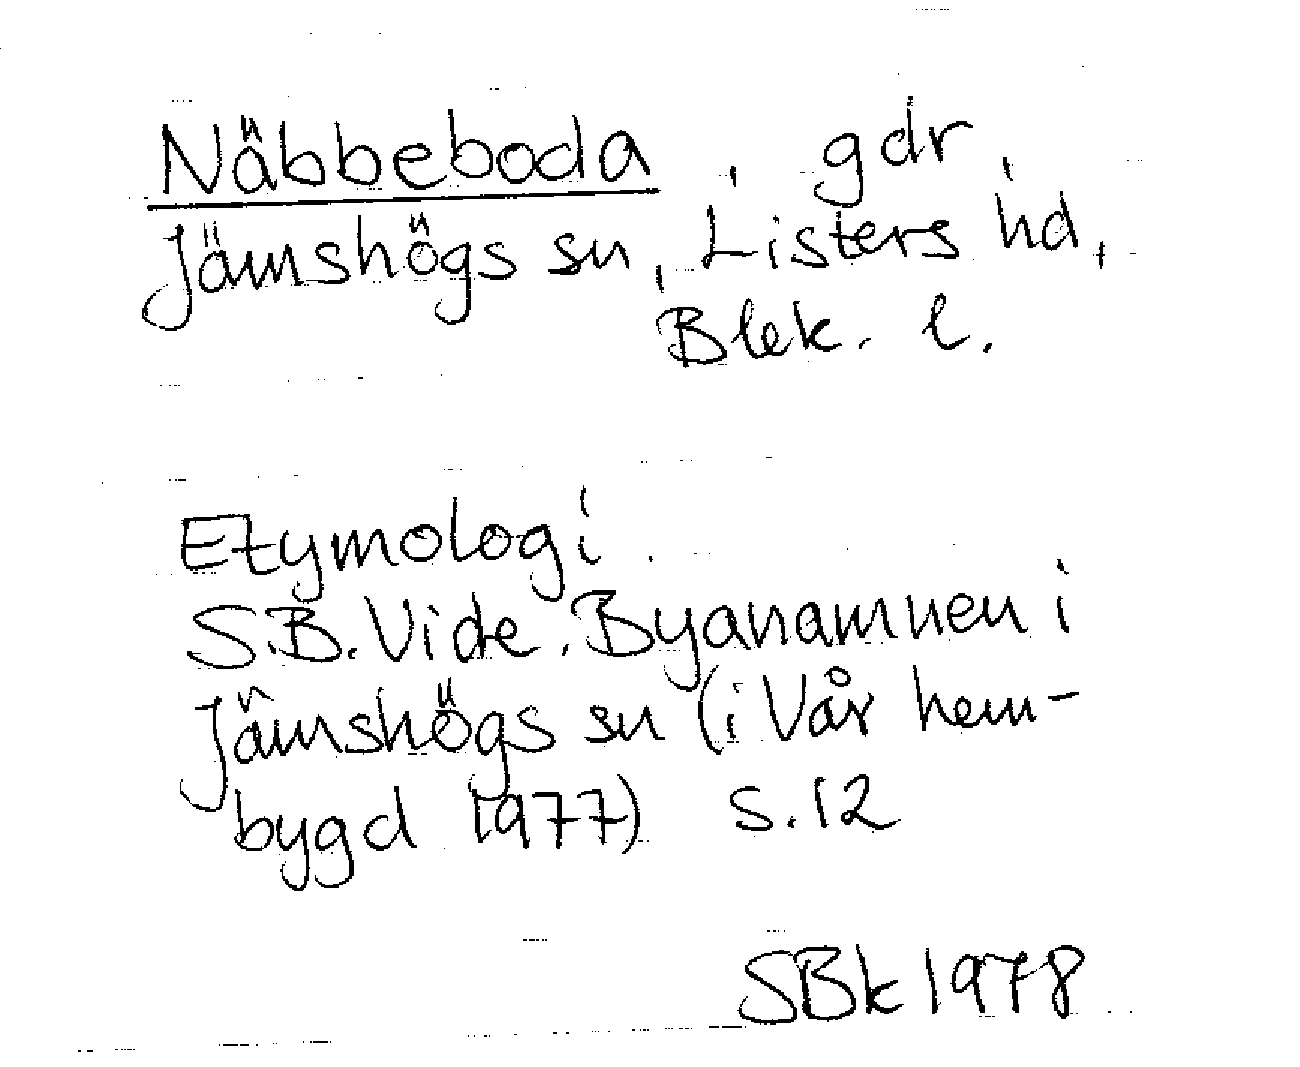 Näbbeboda, gdr,
Jämshögs sn, Listers hd,
Blek. l.
Etymologi.
S.B. Vide. Byanamnen i
Jämshögs sn (i Vår hem-
bygd 1977) s. 12
SBk 1978